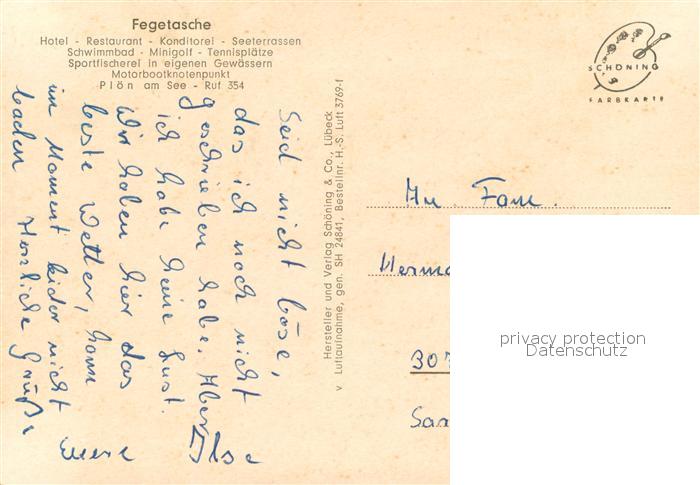 Fegetasche
Hotel - Restaurant - Konditorei - Seeterrassen
Schwimmbad - Minigolf - Tennisplätze
Sportfischerei in eigenen Gewässern
Motorbootknotenpunkt
Plön am See - Ruf 354
SCHÖNING
FARBKARTE
Seid nicht böse,
das ich noch nicht
geschrieben habe. Aber
ich habe keine Lust.
Wir haben hier das
beste Wetter, kann
im Moment leider nicht
baden Herzliche Grüße
Euere Ilse
Hersteller und Verlag Schöning & Co., Lübeck
v Luftaufnahme, gen. SH 24841, Bestellnr. H.-S. Luft 3769-f
An Fam.
Herma
307
Saa
privacy protection
Datenschutz